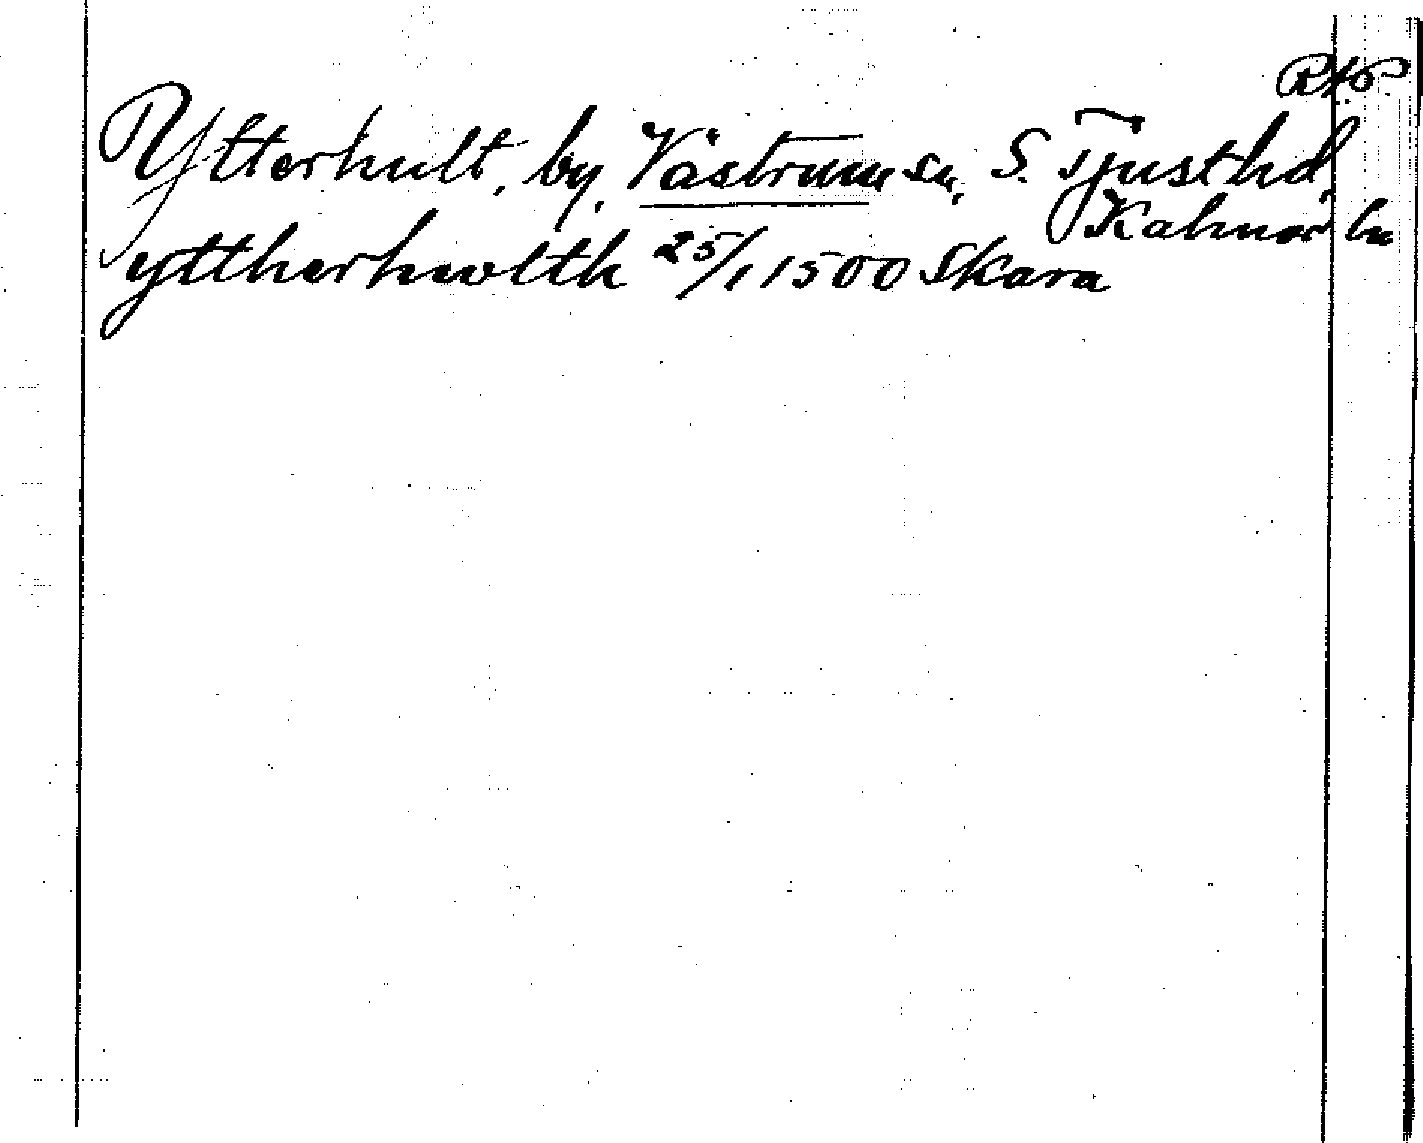 RAp
Ytterhult, by, Västrum sn, S. Tjust hd,
Kalmar ln
yttherhwlth 25/1 1500 Skara